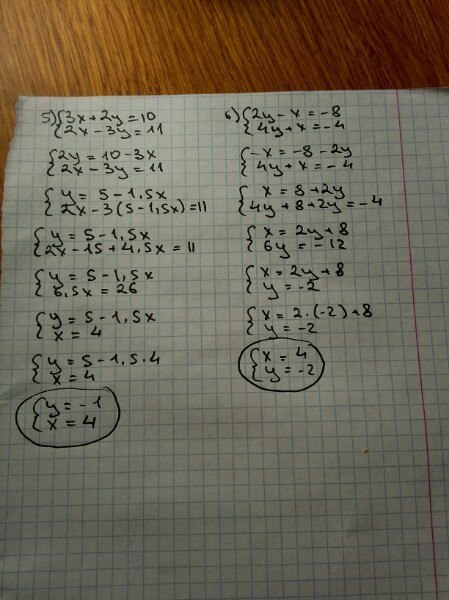 5) {3x+2y=10
2x-3y=11
{2y=10-3x
2x-3y=11
{y=5-1,5x
2x-3(5-1,5x)=11
{y=5-1,5x
2x-15+4,5x=11
{y=5-1,5x
6,5x=26
{y=5-1,5x
x=4
{y=5-1,5·4
x=4
{y=-1
x=4
6) {2y-x=-8
4y+x=-4
{-x=-8-2y
4y+x=-4
{x=8+2y
4y+8+2y=-4
{x=2y+8
6y=-12
{x=2y+8
y=-2
{x=2·(-2)+8
y=-2
{x=4
y=-2